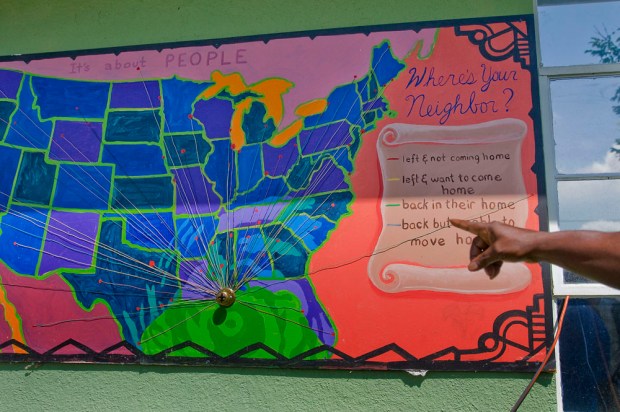 It's about PEOPLE
Where's Your
Neighbor?
left & not coming home
left & want to come
home
back in their home
back but to
move ho